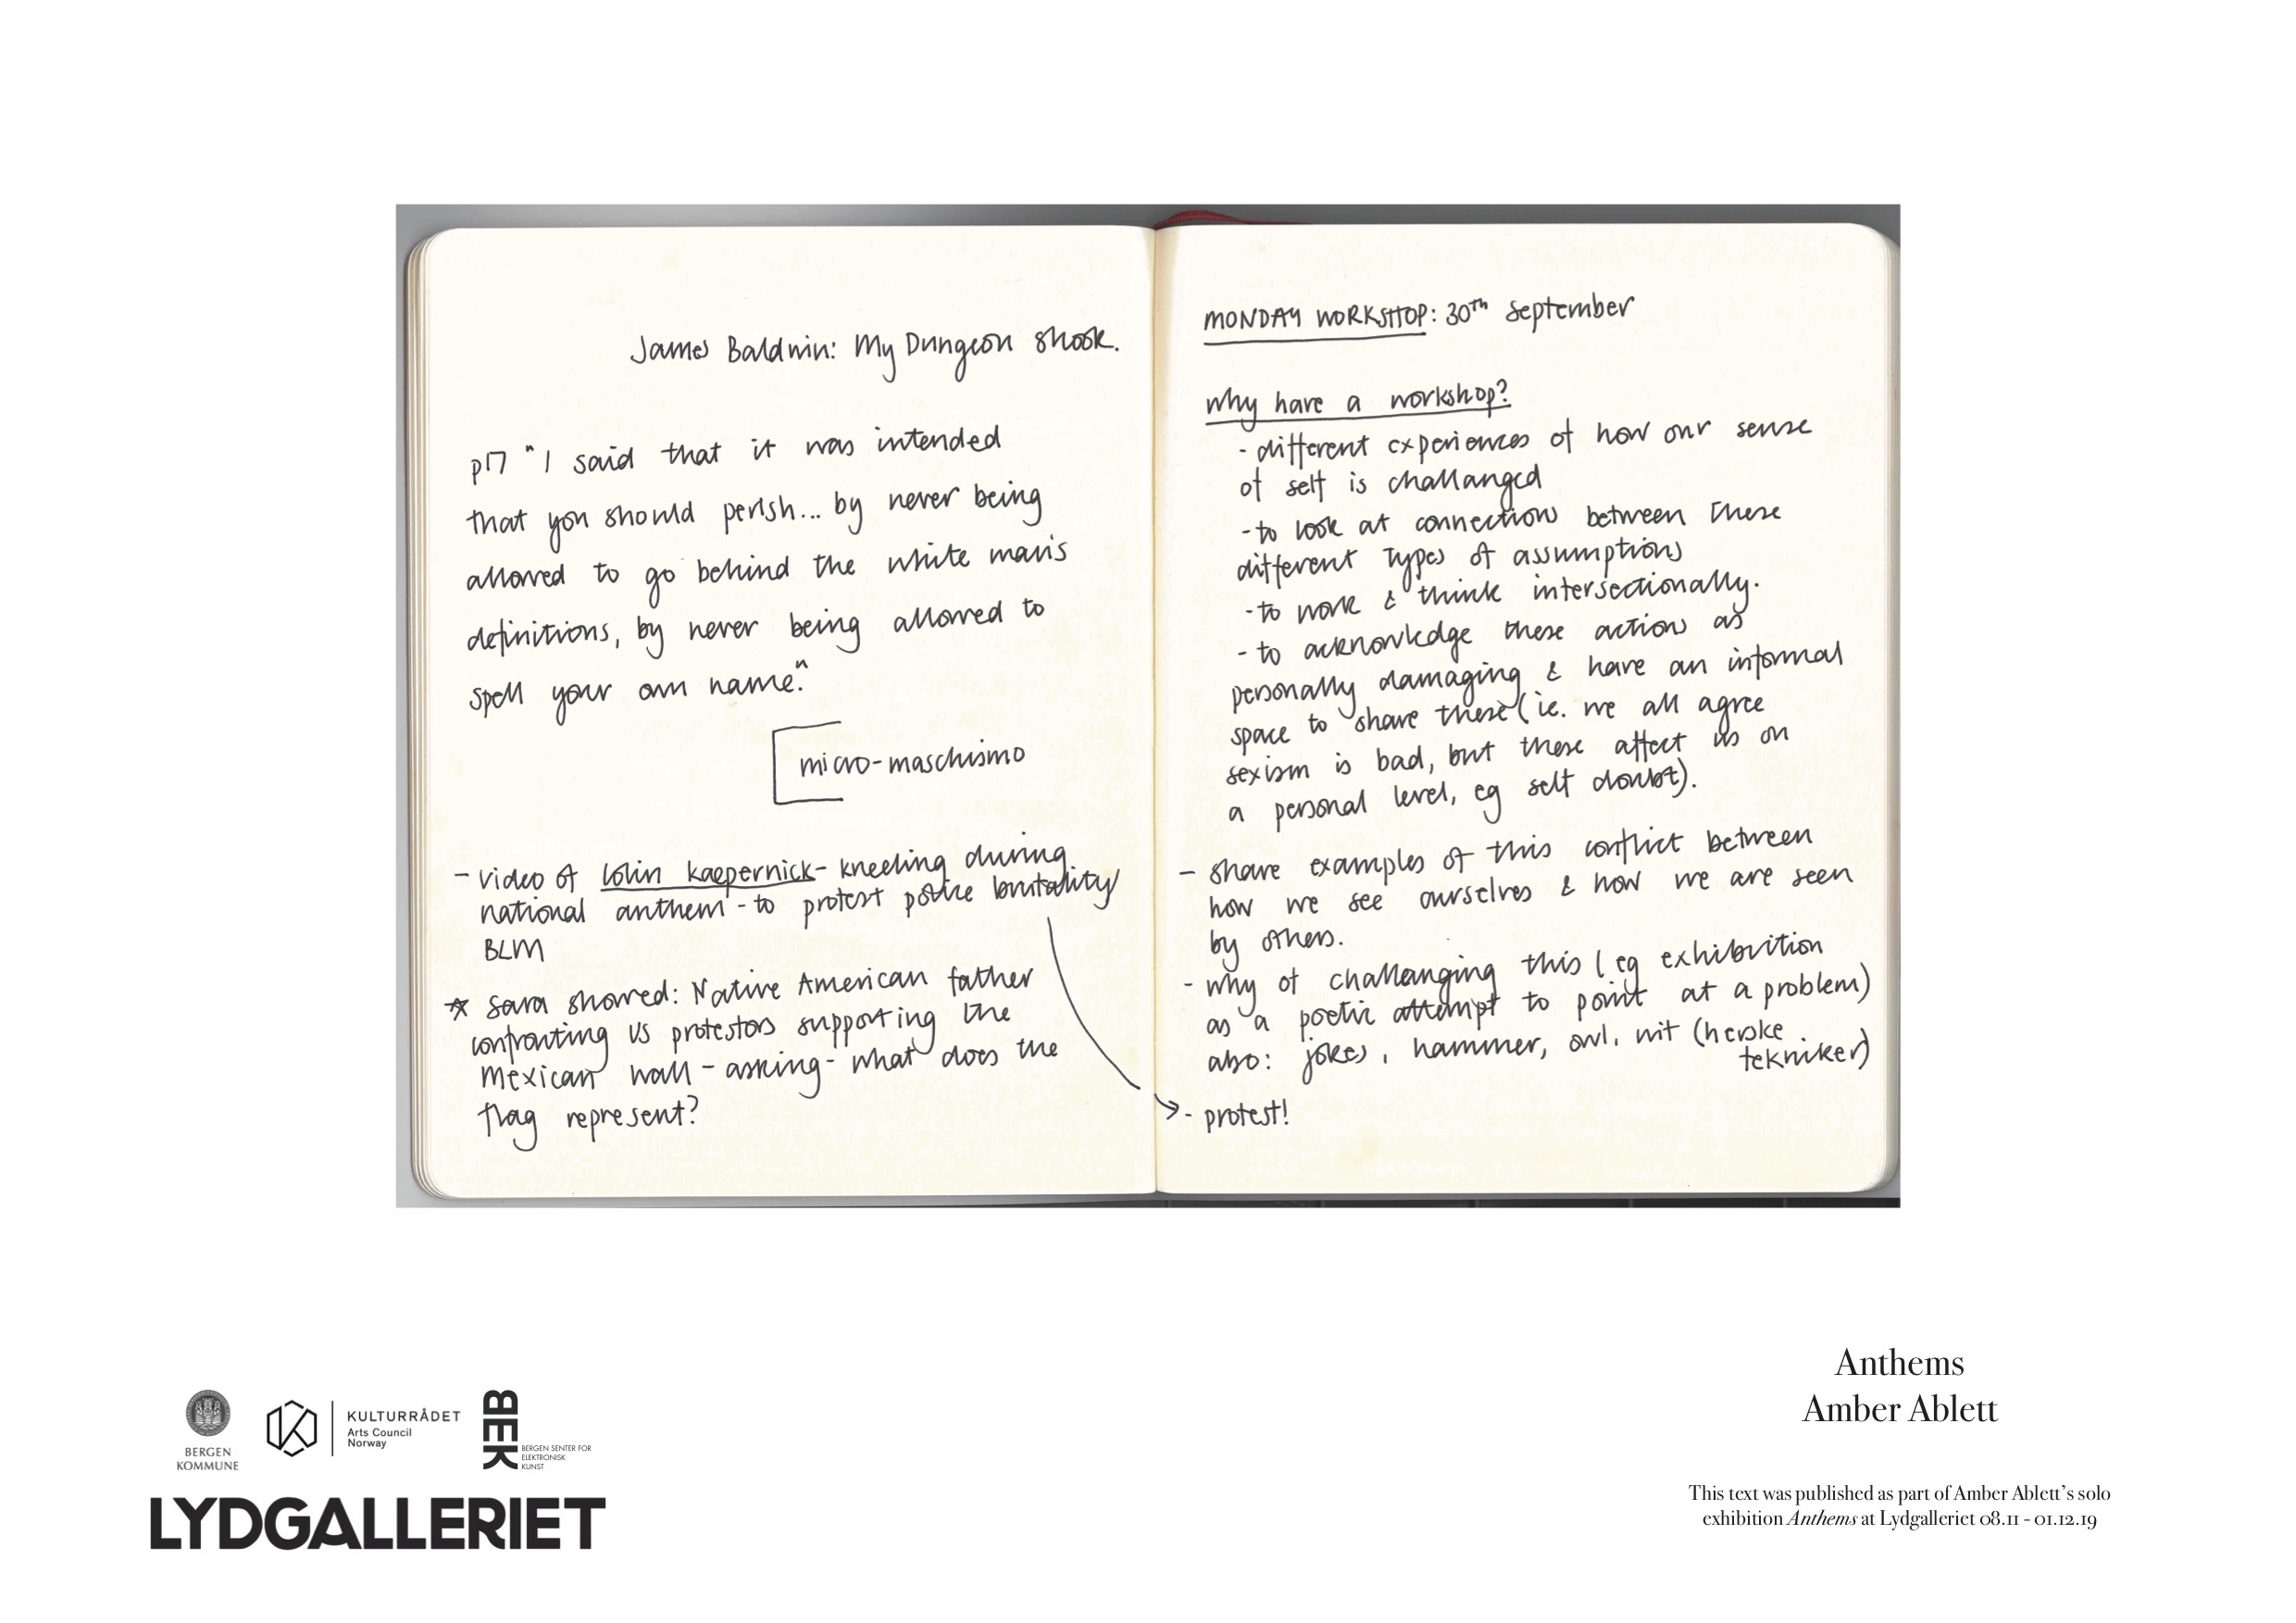 James Baldwin: My Dungeon Shook.
p17 "I said that it was intended
that you should perish... by never being
allowed to go behind the white man's
definitions, by never being allowed to
spell your own name."
micro-maschismo
- video of Colin Kaepernick - kneeling during
national anthem - to protest police brutality
BLM
☆ Sara showed: Native American father
confronting US protestors supporting the
Mexican wall - asking - what does the
flag represent?
MONDAY WORKSHOP: 30th September
why have a workshop?
- different experiences of how our sense
of self is challanged
- to look at connections between these
different types of assumptions
- to work & think intersectionally.
- to acknowledge these actions as
personally damaging & have an informal
space to share these (ie. we all agree
sexism is bad, but these affect us on
a personal level, eg self doubt).
- share examples of this conflict between
how we see ourselves & how we are seen
by others.
- why of challanging this (eg exhibition
as a poetic attempt to point at a problem)
also: jokes, hammer, owl, wit (herske
tekniker)
→ - protest!
BERGEN
KOMMUNE
KULTURRÅDET
Arts Council
Norway
BEK
BERGEN SENTER FOR
ELEKTRONISK
KUNST
LYDGALLERIET
Anthems
Amber Ablett
This text was published as part of Amber Ablett's solo
exhibition Anthems at Lydgalleriet 08.11 - 01.12.19